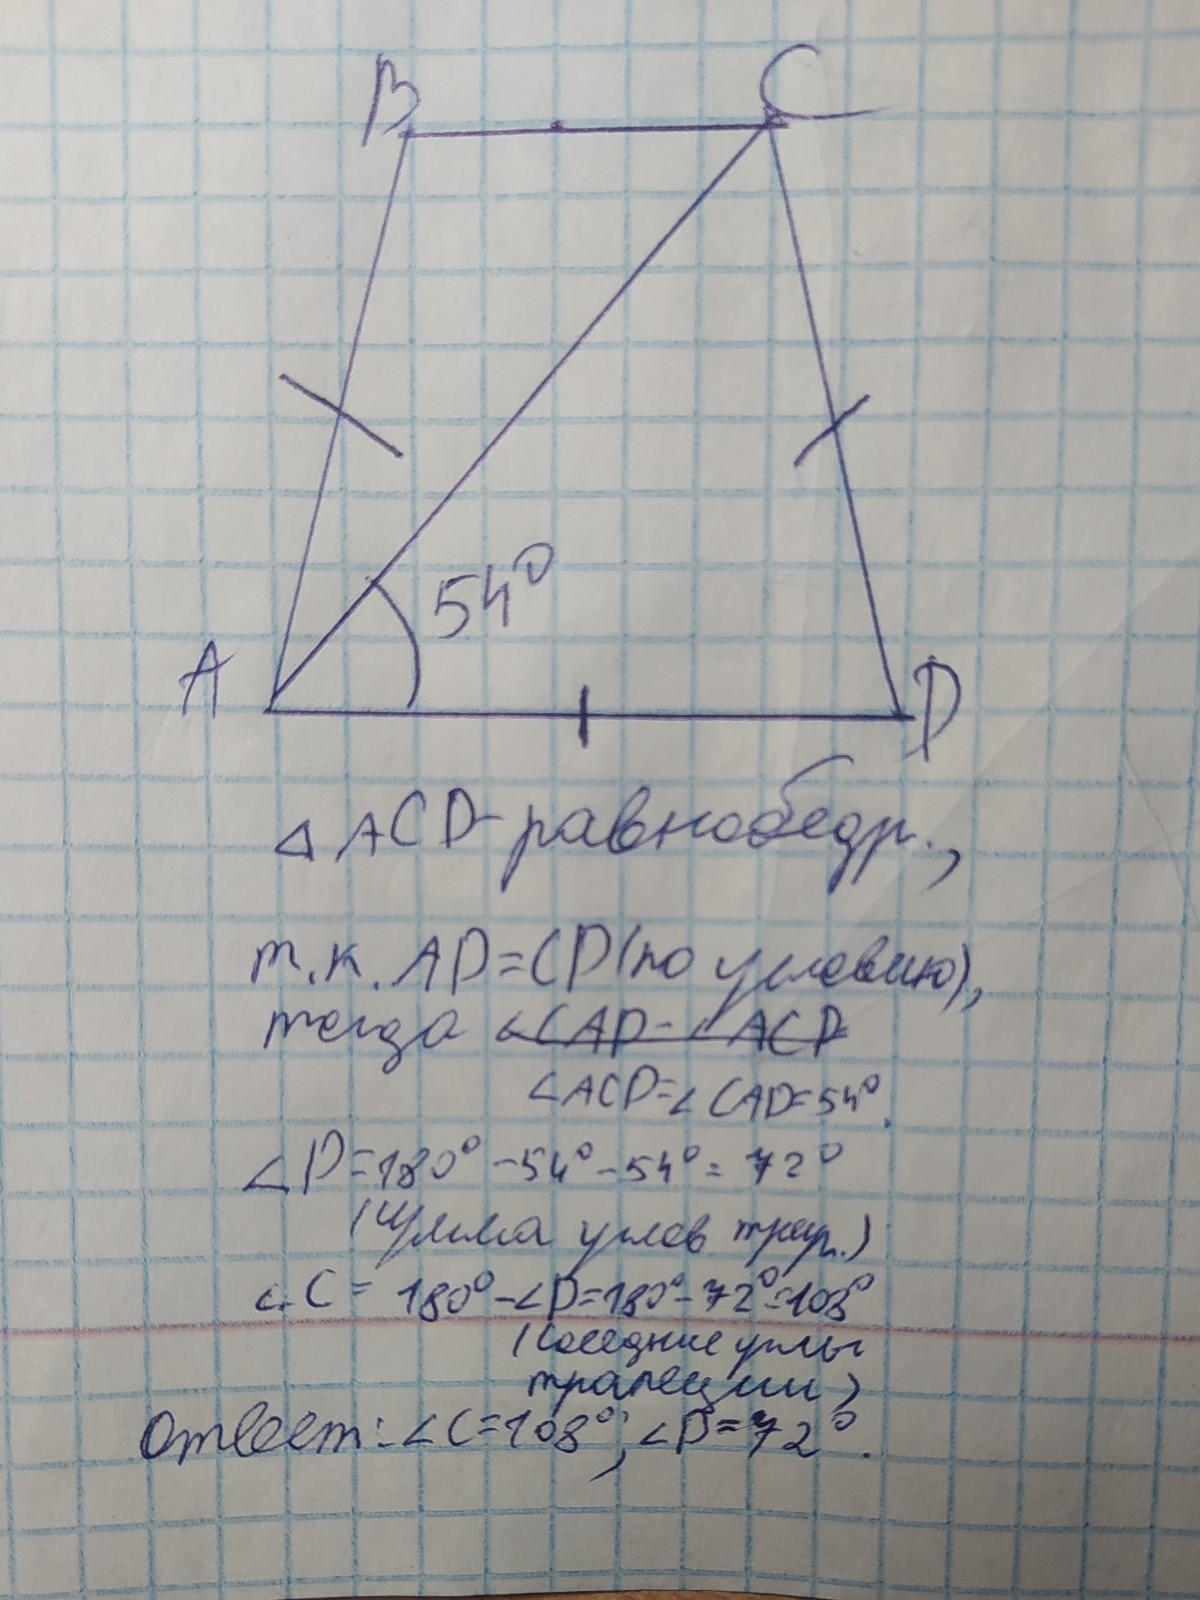 B C
54°
A D
△ACD-равнобедр.,
т.к. AD=CD(по условию),
тогда ∠CAD-∠ACD
∠ACD=∠CAD=54°.
∠D=180°-54°-54°=72°
(сумма углов треуг.)
∠C= 180°-∠D=180°-72°=108°
(соседние углы
трапеции)
Ответ:∠C=108°;∠D=72°.